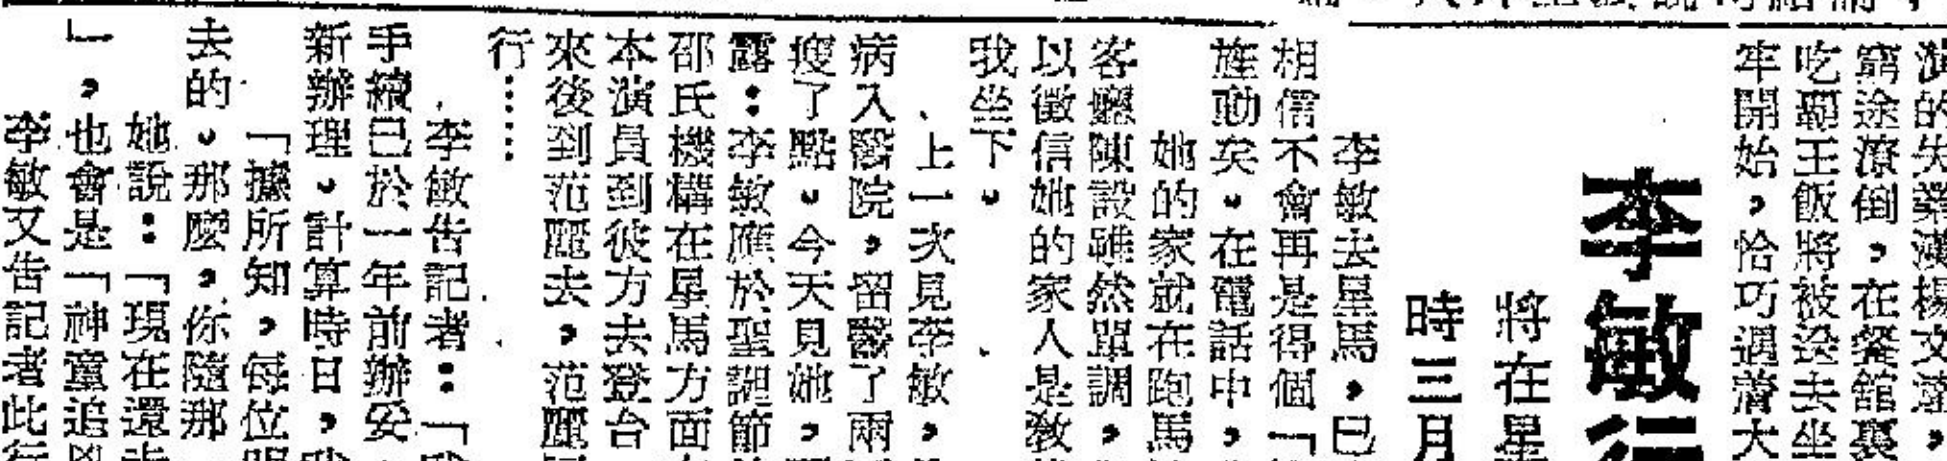 演的失業漢楊文達，
窮途潦倒，在餐館裏
吃霸王飯將被送去坐
牢開始，恰巧遇着大
李敏行
將在星
時三月
李敏去星馬，已
相信不會再是得個「
旌動矣。在電話中，
她的家就在跑馬
客廳陳設雖然單調，
以徵信她的家人是教
我坐下。
上一次見李敏，
病入醫院，留醫了兩
瘦了點。今天見她，
露：李敏應於聖誕節
邵氏機構在星馬方面
本演員到彼方去登台
來後到范麗去，范麗
行……
李敏告記者：「我
手續已於一年前辦妥
新辦理。計算時日，我
「據所知，每位明
去的。那麼，你隨那
她說：「現在還未
」，也會是「神童追凶
李敏又告記者此行